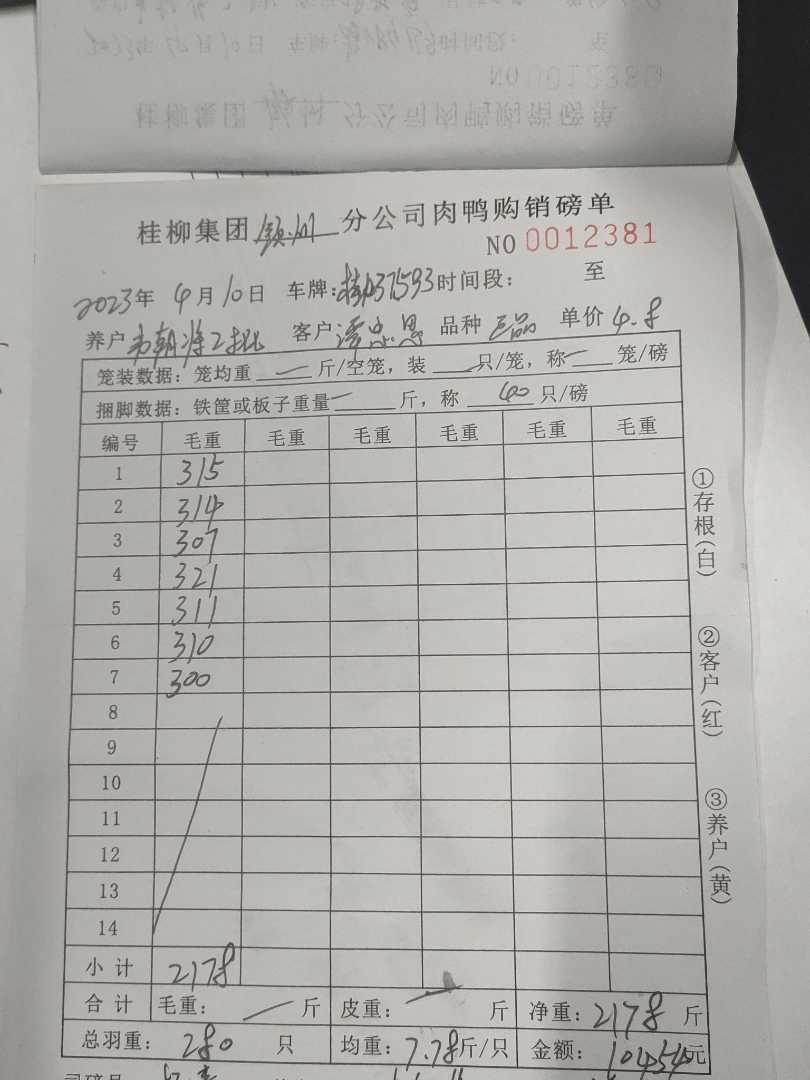 桂柳集团钦州分公司肉鸭购销磅单
NO 0012381
2023年 4月10日 车牌:桂N37593 时间段: 至
养户 客户: 品种 单价 4.8
笼装数据: 笼均重 — 斤/空笼, 装 — 只/笼, 称 — 笼/磅
捆脚数据: 铁筐或板子重量 — 斤, 称 40 只/磅
编号 毛重 毛重 毛重 毛重 毛重 毛重
1 315
2 314
3 307
4 321
5 311
6 310
7 300
8
9
10
11
12
13
14
小计 2178
合计 毛重: — 斤 皮重: — 斤 净重: 2178 斤
总羽重: 280 只 均重: 7.78斤/只 金额: 10454元
①存根(白)
②客户(红)
③养户(黄)